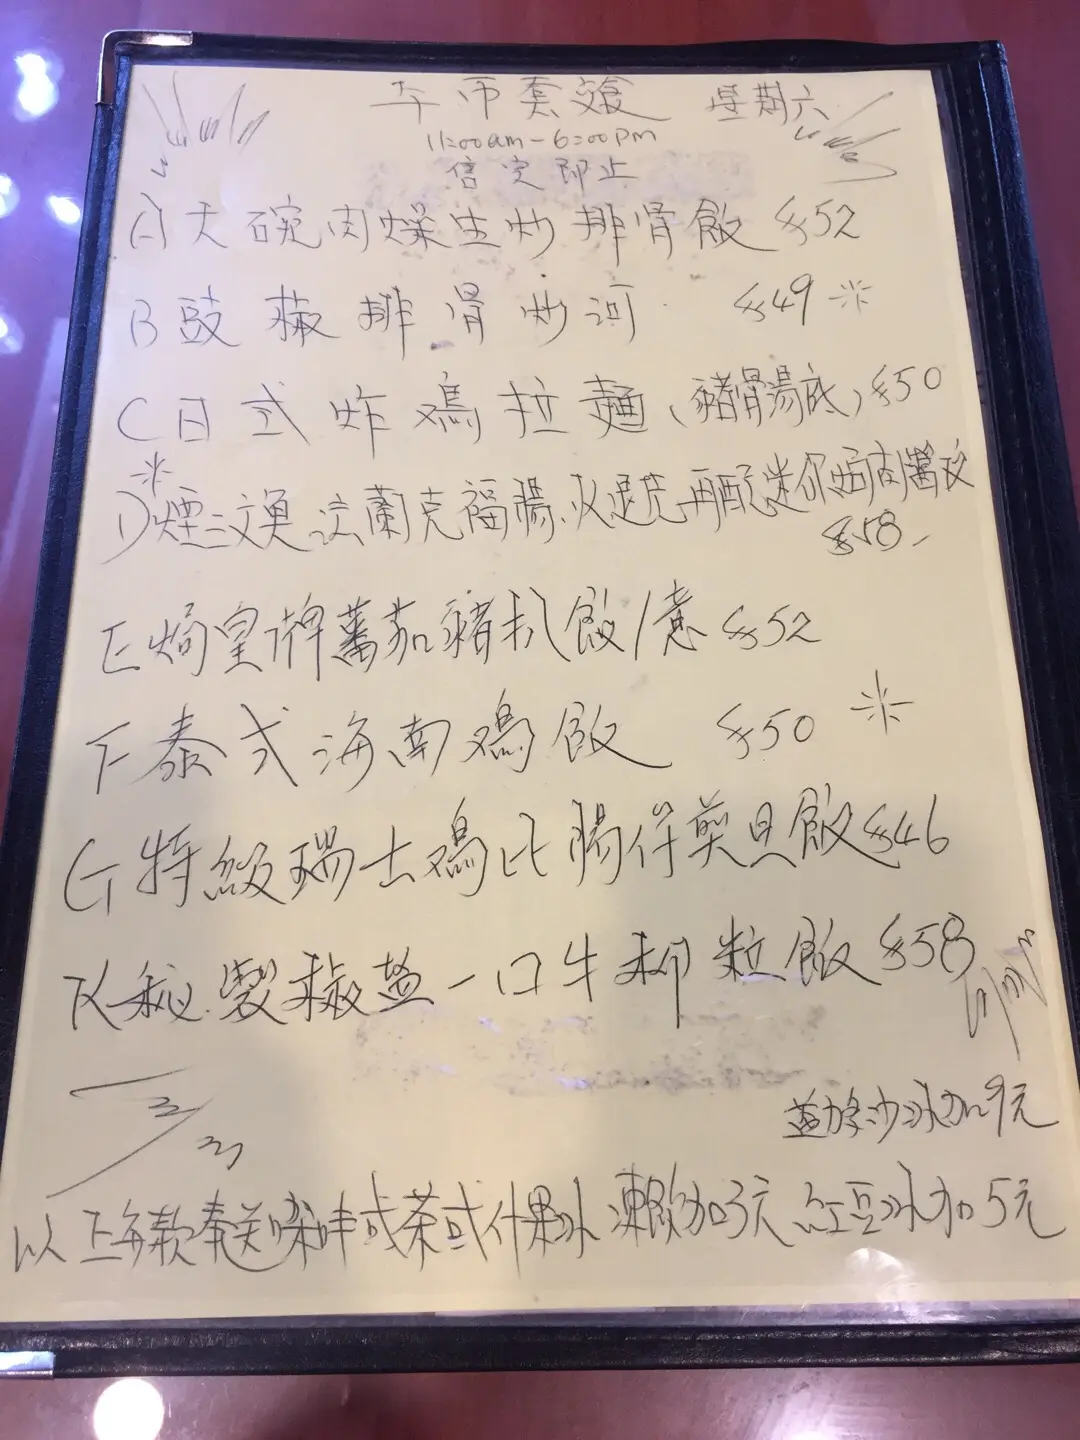 午市套餐 星期六
11:00am-6:00pm
售完即止
A 大碗肉燥生炒排骨飯 $52
B 豉椒排骨炒河 $49
C 日式炸鷄拉麵(豬骨湯底) $50
D 煙三文魚法蘭克福腸
$58
E 焗皇牌蕃茄豬扒飯/意 $52
F 泰式海南鷄飯 $50
G 特級瑞士鷄比腸伴煎旦飯 $46
K 秘製椒盬一口牛柳粒飯 $58
沙冰加9元
以上每款奉送啡或茶或什果冰 凍飲加3元 紅豆冰加5元